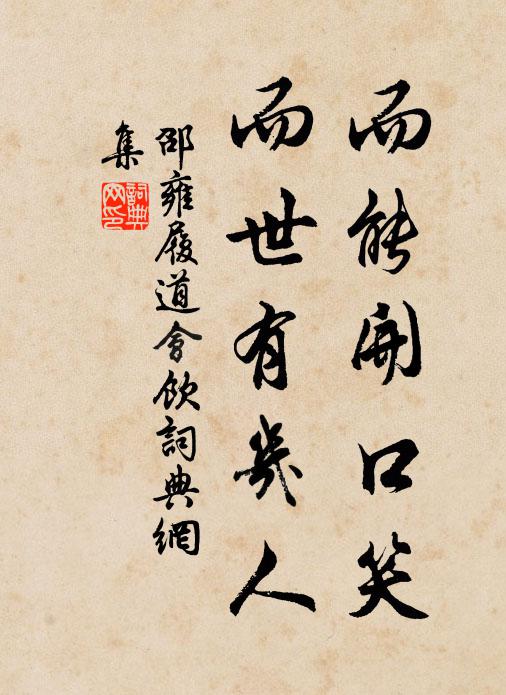 而能開口笑
而世有幾人
邵雍履道會飲詞典網
集
詞典
网印